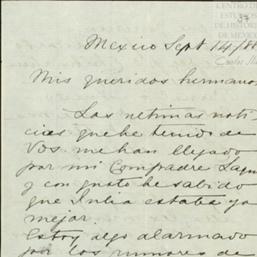 CENTRO DE
ESTUDIOS
DE HISTORIA
DE MEXICO
37
Mexico Sept 14/88
Mis queridos hermanos
Las ultimas noti
cias que he tenido de
Vos. me han llegado
por mi Compadre Layn
y con gusto he sabido
que Julia estaba ya
mejor.
Estoy algo alarmado
por los rumores de